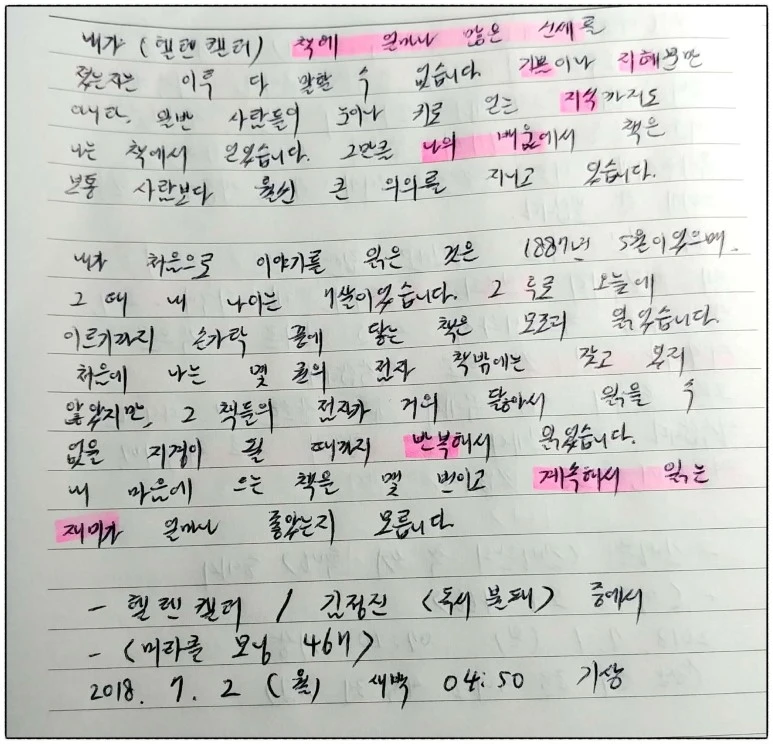 내가 (헬렌 켈러) 책에 얼마나 많은 신세를
졌는지는 이루 다 말할 수 없습니다. 기쁨이나 지혜뿐만
아니라, 일반 사람들이 눈이나 귀로 얻는 지식까지도
나는 책에서 얻었습니다. 그만큼 나의 배움에서 책은
보통 사람보다 훨씬 큰 의의를 지니고 있습니다.
내가 처음으로 이야기를 읽은 것은 1887년 5월이었으며,
그 때 내 나이는 7살이었습니다. 그 후로 오늘에
이르기까지 손가락 끝에 닿는 책은 모조리 읽었습니다.
처음에 나는 몇 권의 점자 책밖에는 갖고 있지
않았지만, 그 책들의 점자가 거의 닳아서 읽을 수
없을 지경이 될 때까지 반복해서 읽었습니다.
내 마음에 드는 책을 몇 번이고 계속해서 읽는
재미가 얼마나 좋았는지 모릅니다.
- 헬렌 켈러 / 김정진 <독서 불패> 중에서
- <미라클 모닝 467>
2018. 7. 2 (월) 새벽 04:50 기상